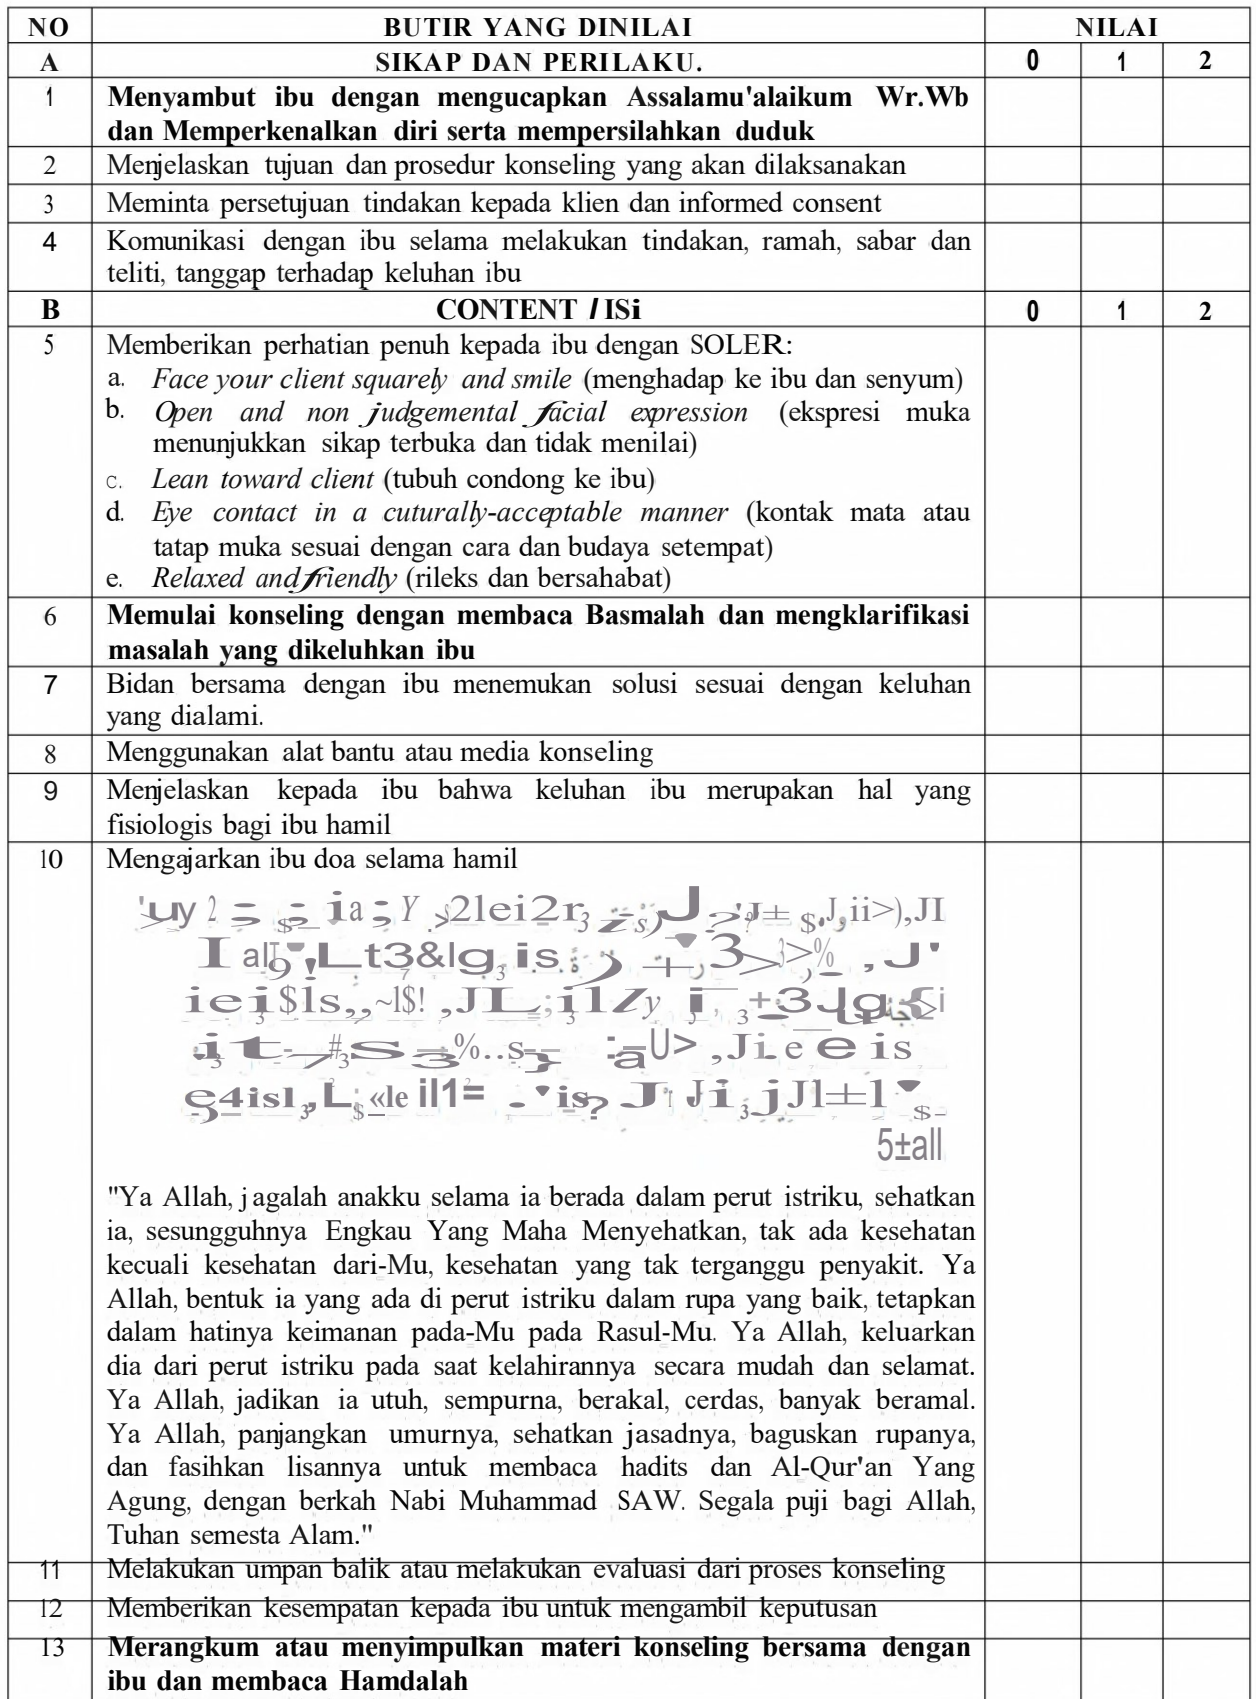 NO BUTIR YANG DINILAI NILAI
A SIKAP DAN PERILAKU. 0 1 2
1 Menyambut ibu dengan mengucapkan Assalamu'alaikum Wr.Wb
dan Memperkenalkan diri serta mempersilahkan duduk
2 Menjelaskan tujuan dan prosedur konseling yang akan dilaksanakan
3 Meminta persetujuan tindakan kepada klien dan informed consent
4 Komunikasi dengan ibu selama melakukan tindakan, ramah, sabar dan
teliti, tanggap terhadap keluhan ibu
B CONTENT / ISi 0 1 2
5 Memberikan perhatian penuh kepada ibu dengan SOLER:
a. Face your client squarely and smile (menghadap ke ibu dan senyum)
b. Open and non judgemental facial expression (ekspresi muka
menunjukkan sikap terbuka dan tidak menilai)
c. Lean toward client (tubuh condong ke ibu)
d. Eye contact in a cuturally-acceptable manner (kontak mata atau
tatap muka sesuai dengan cara dan budaya setempat)
e. Relaxed and friendly (rileks dan bersahabat)
6 Memulai konseling dengan membaca Basmalah dan mengklarifikasi
masalah yang dikeluhkan ibu
7 Bidan bersama dengan ibu menemukan solusi sesuai dengan keluhan
yang dialami.
8 Menggunakan alat bantu atau media konseling
9 Menjelaskan kepada ibu bahwa keluhan ibu merupakan hal yang
fisiologis bagi ibu hamil
10 Mengajarkan ibu doa selama hamil
"Ya Allah, jagalah anakku selama ia berada dalam perut istriku, sehatkan
ia, sesungguhnya Engkau Yang Maha Menyehatkan, tak ada kesehatan
kecuali kesehatan dari-Mu, kesehatan yang tak terganggu penyakit. Ya
Allah, bentuk ia yang ada di perut istriku dalam rupa yang baik, tetapkan
dalam hatinya keimanan pada-Mu pada Rasul-Mu. Ya Allah, keluarkan
dia dari perut istriku pada saat kelahirannya secara mudah dan selamat.
Ya Allah, jadikan ia utuh, sempurna, berakal, cerdas, banyak beramal.
Ya Allah, panjangkan umurnya, sehatkan jasadnya, baguskan rupanya,
dan fasihkan lisannya untuk membaca hadits dan Al-Qur'an Yang
Agung, dengan berkah Nabi Muhammad SAW. Segala puji bagi Allah,
Tuhan semesta Alam."
11 Melakukan umpan balik atau melakukan evaluasi dari proses konseling
12 Memberikan kesempatan kepada ibu untuk mengambil keputusan
13 Merangkum atau menyimpulkan materi konseling bersama dengan
ibu dan membaca Hamdalah